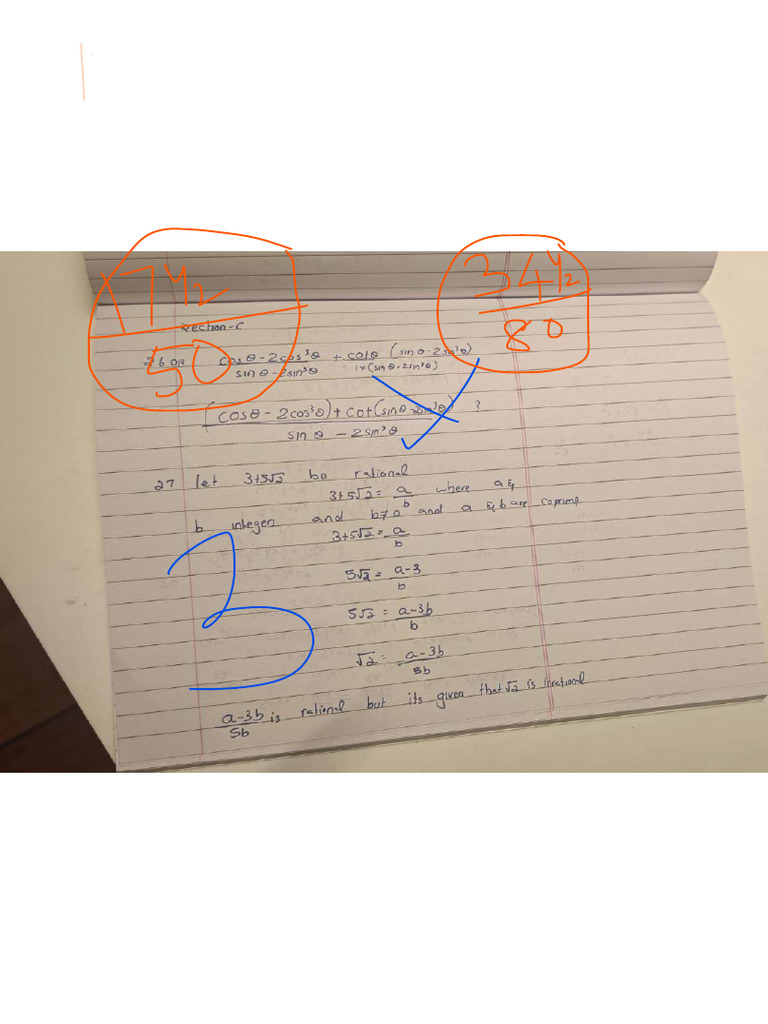 17 1/2 / 50
34 1/2 / 80
Section-C
26 OR cosθ-2cos³θ / sinθ-2sin³θ + cotθ (sinθ-2sin³θ) / 1×(sinθ-2sin³θ)
(cosθ-2cos³θ)+cot(sinθ-2sin³θ) / sinθ-2sin³θ ?
27 let 3+5√2 be rational
3+5√2 = a/b where a &
b integen and b≠0 and a & b are coprime
3+5√2 = a/b
3
5√2 = a-3/b
5√2 = a-3b/b
√2 = a-3b/5b
a-3b/5b is rational but its given that √2 is irrational